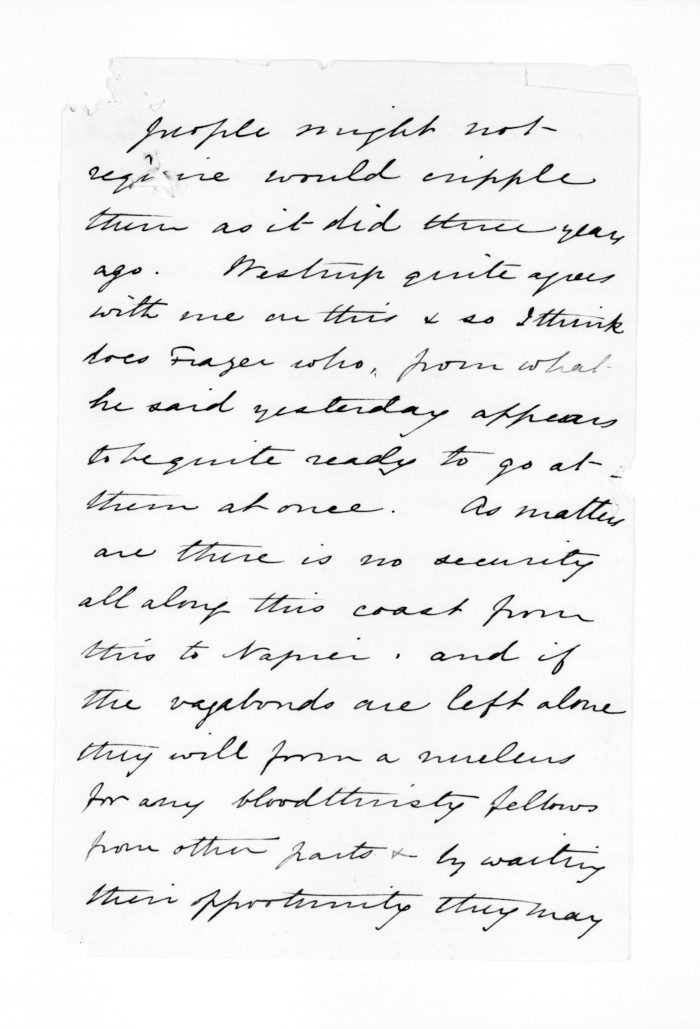 people might not
require would cripple
them as it did three years
ago. Westrup quite agrees
with me on this & so I think
does Frazer who, from what
he said yesterday appears
to be quite ready to go at
them at once. As matters
are there is no security
all along this coast from
this to Napier. and if
the vagabonds are left alone
they will form a nucleus
for any bloodthirsty fellows
from other parts & by waiting
their opportunity they may